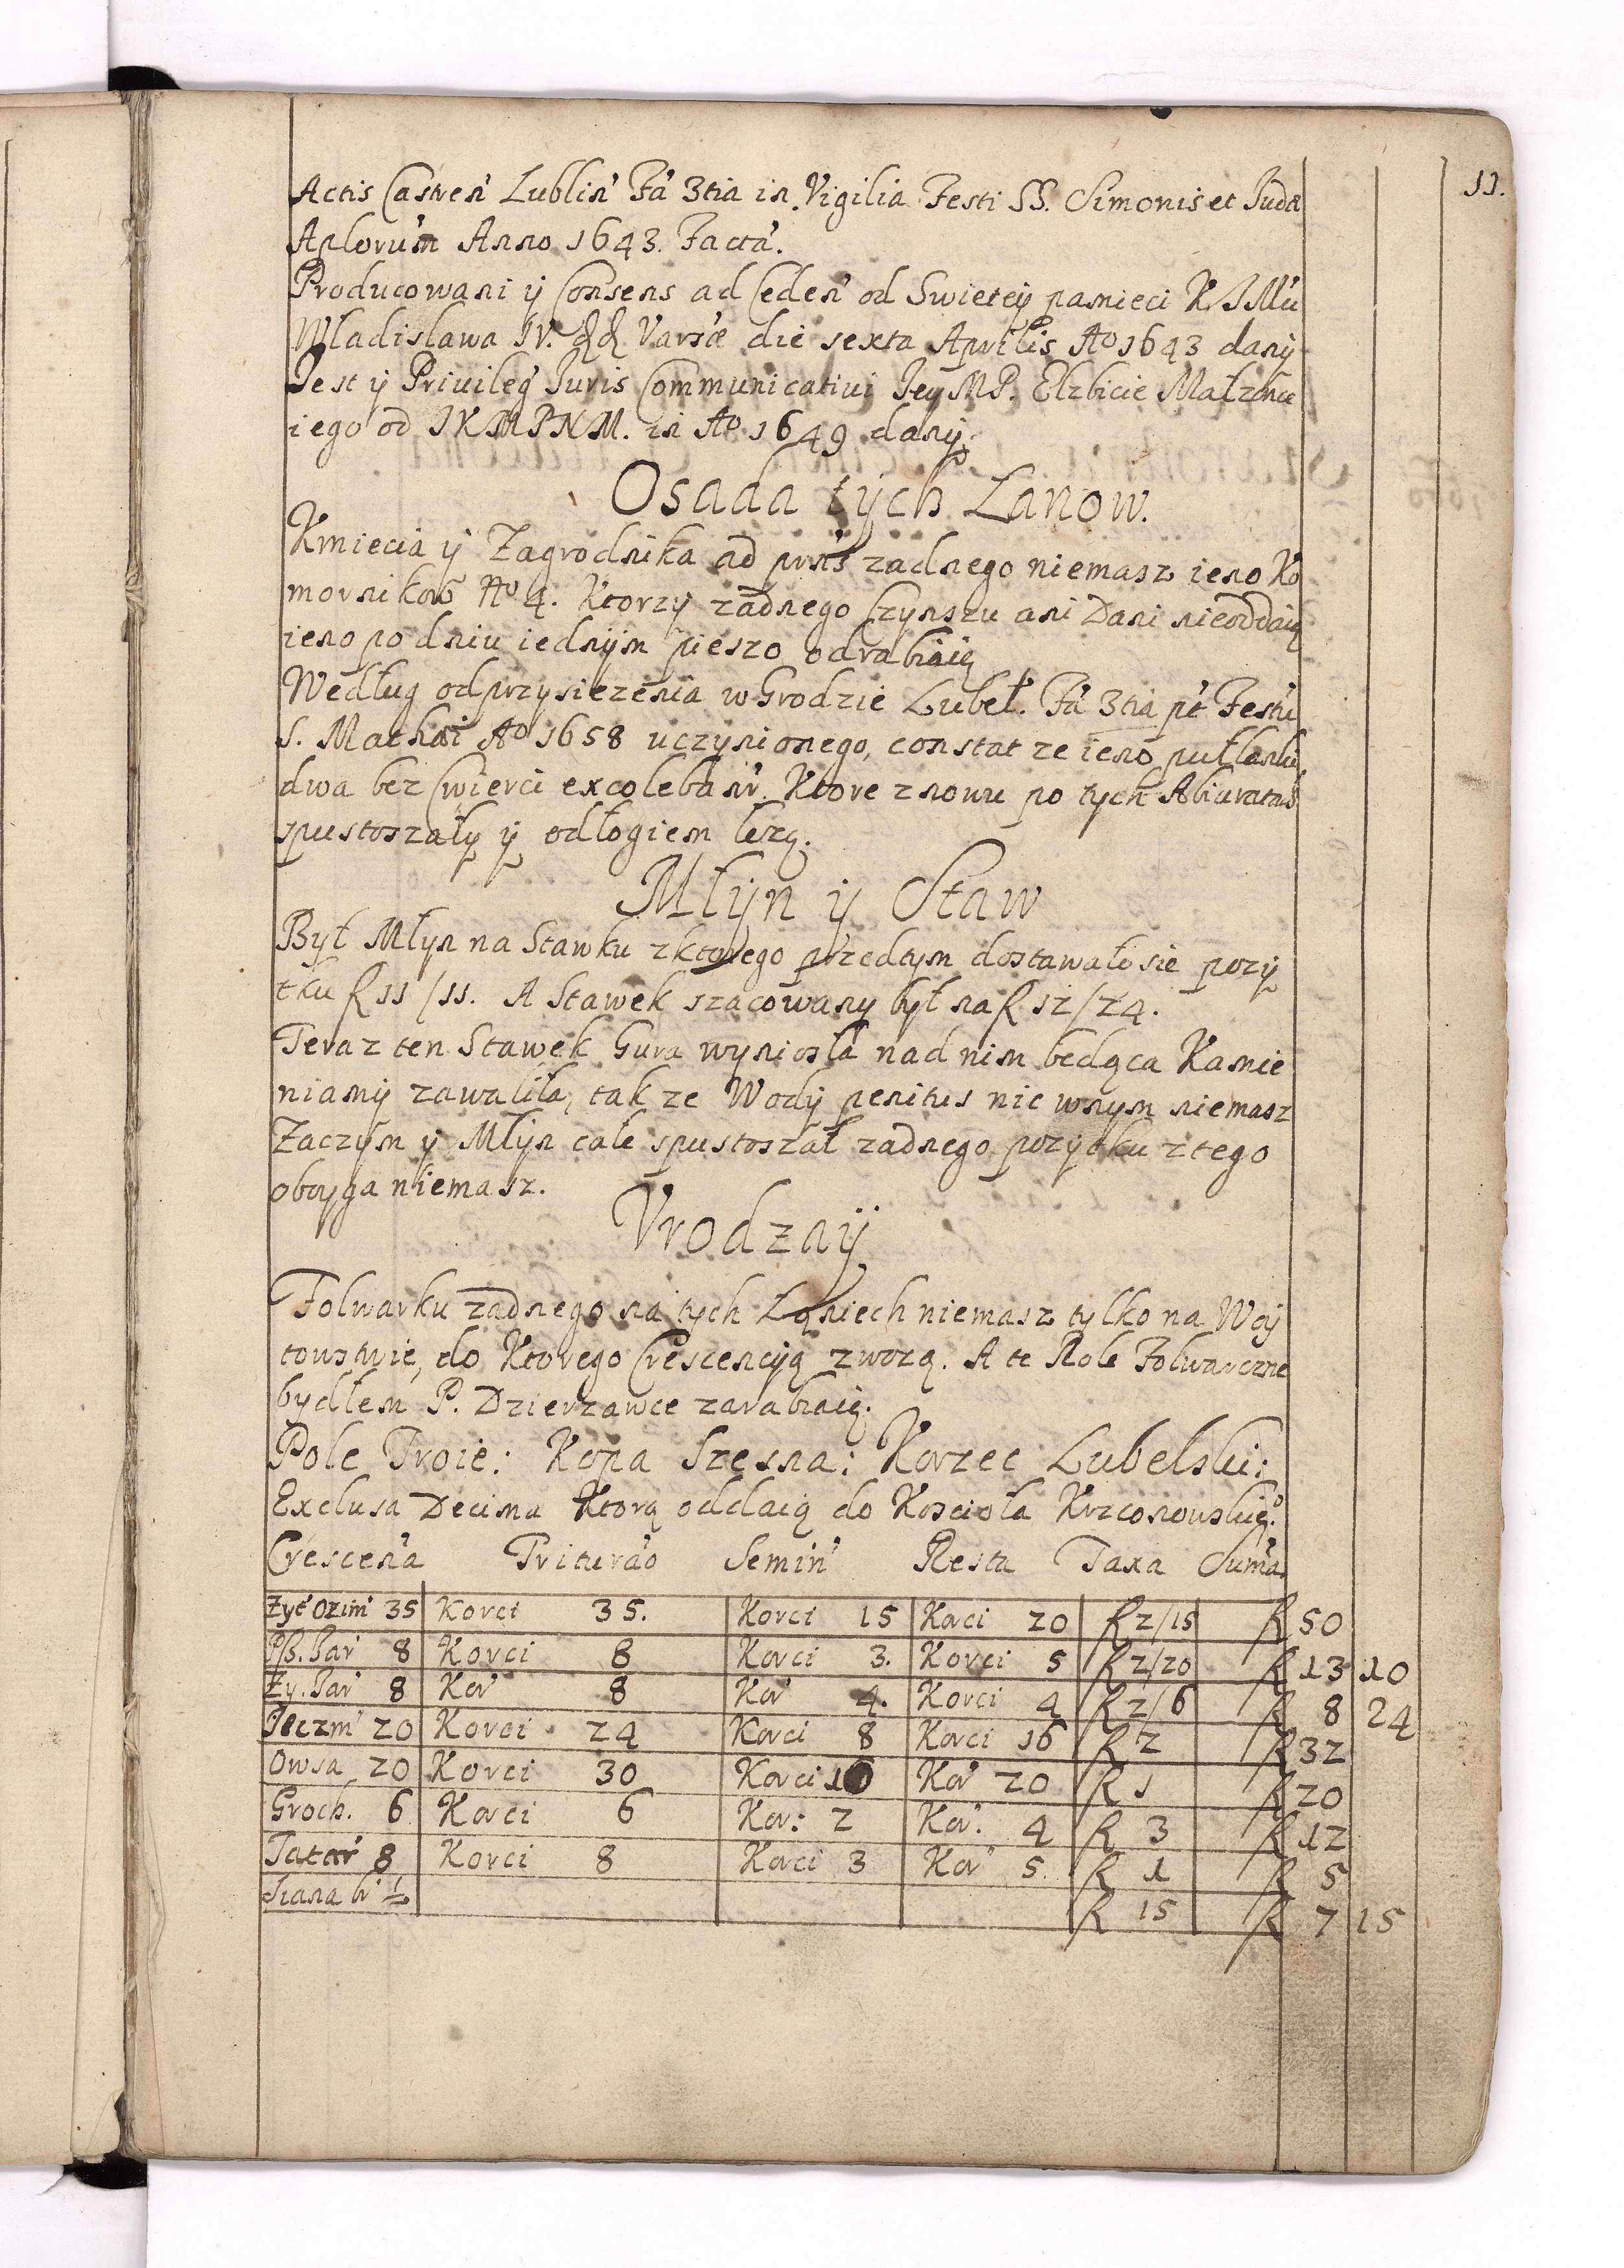 11.
Actis Castren Lublin Fa 3tia in Vigilia Festi SS. Simonis et Juda
Aplorum Anno 1643. Facta.
Producowani ÿ Consens ad Ceden od Swietey pamieci K
Wladislawa IV. Varsæ die sexta Aprilis Aº 1643 dany
Jest ÿ Privileg Juris Communicativi Jey MP. Elzbicie Malzonce
iego od JKMPNM. in Aº 1649 dany.
Osada tych Lanow.
Kmiecia ÿ Zagrodnika ad prns zadnego niemasz ieno Ko
mornikow Nº 4. Ktorzy zadnego Czynszu ani Dani nieoddaią
ieno po dniu iednym pieszo odrabiaią
Według odprzysiezenia w Grodzie Lubel. Fa 3tia pt Festu
S. Mathæi Aº 1658 uczynionego, constat ze ieno pułlanki
dwa bez Cwierci excolebanr. Ktore znowu po tych Abiuratas
spustoszały ÿ odłogiem lezą.
Młyn ÿ Staw
Był Młyn na Stawku zktorego przedtym dostawało sie pozy
tku f 11/11. A Stawek szacowany był na f 12/24.
Teraz ten Stawek Gura wyniosła nad nim będąca Kamie
niamy zawaliła, tak ze Wody penitus nic wnym niemasz
Zaczym y Młyn cale spustoszał zadnego pozytku ztego
oboyga niemasz.
Vrodzaÿ
Folwarku zadnego na tych Łąniech niemasz tylko na Woy
towstwie, do Ktorego Crescencyą zwozą. A te Role Folwarczne
bydłem P. Dzierzawce zarabiaią.
Pole Troie: Kopa Szesna: Korzec Lubelski:
Exclusa Decima Ktorą oddaią do Kosciola Krzconowskieº.
Crescena Triturao Semin Resta Taxa Suma
Zyt Ozim 35 Korci 35. Korci 15 Korci 20 f 2/15 f 50
Psz. Jar 8 Korci 8 Korci 3. Korci 5 f 2/20 f 13 10
Zy. Jar 8 Kor 8 Kor 4. Korci 4 f 2/6 f 8 24
Jeczm 20 Korci 24 Korci 8 Korci 16 f 2 f 32
Owsa 20 Korci 30 Korci 10 Kor 20 f 1 f 20
Groch. 6 Korci 6 Kor: 2 Kor. 4 f 3 f 12
Tatar 8 Korci 8 Korci 3 Kor 5. f 1 f 5
Siana br ½ f 15 f 7 15